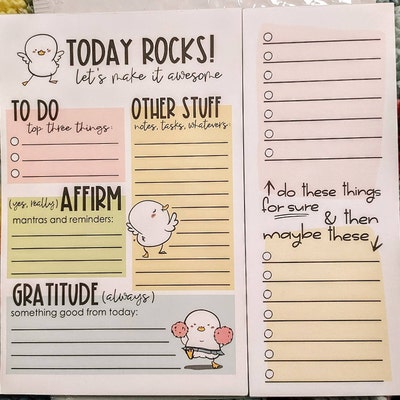 TODAY ROCKS!
let's make it awesome
TO DO
top three things:
OTHER STUFF
notes, tasks, whatevers:
(yes, really) AFFIRM
mantras and reminders:
GRATITUDE (always)
something good from today:
↑ do these things
for sure
& then
maybe these ↓